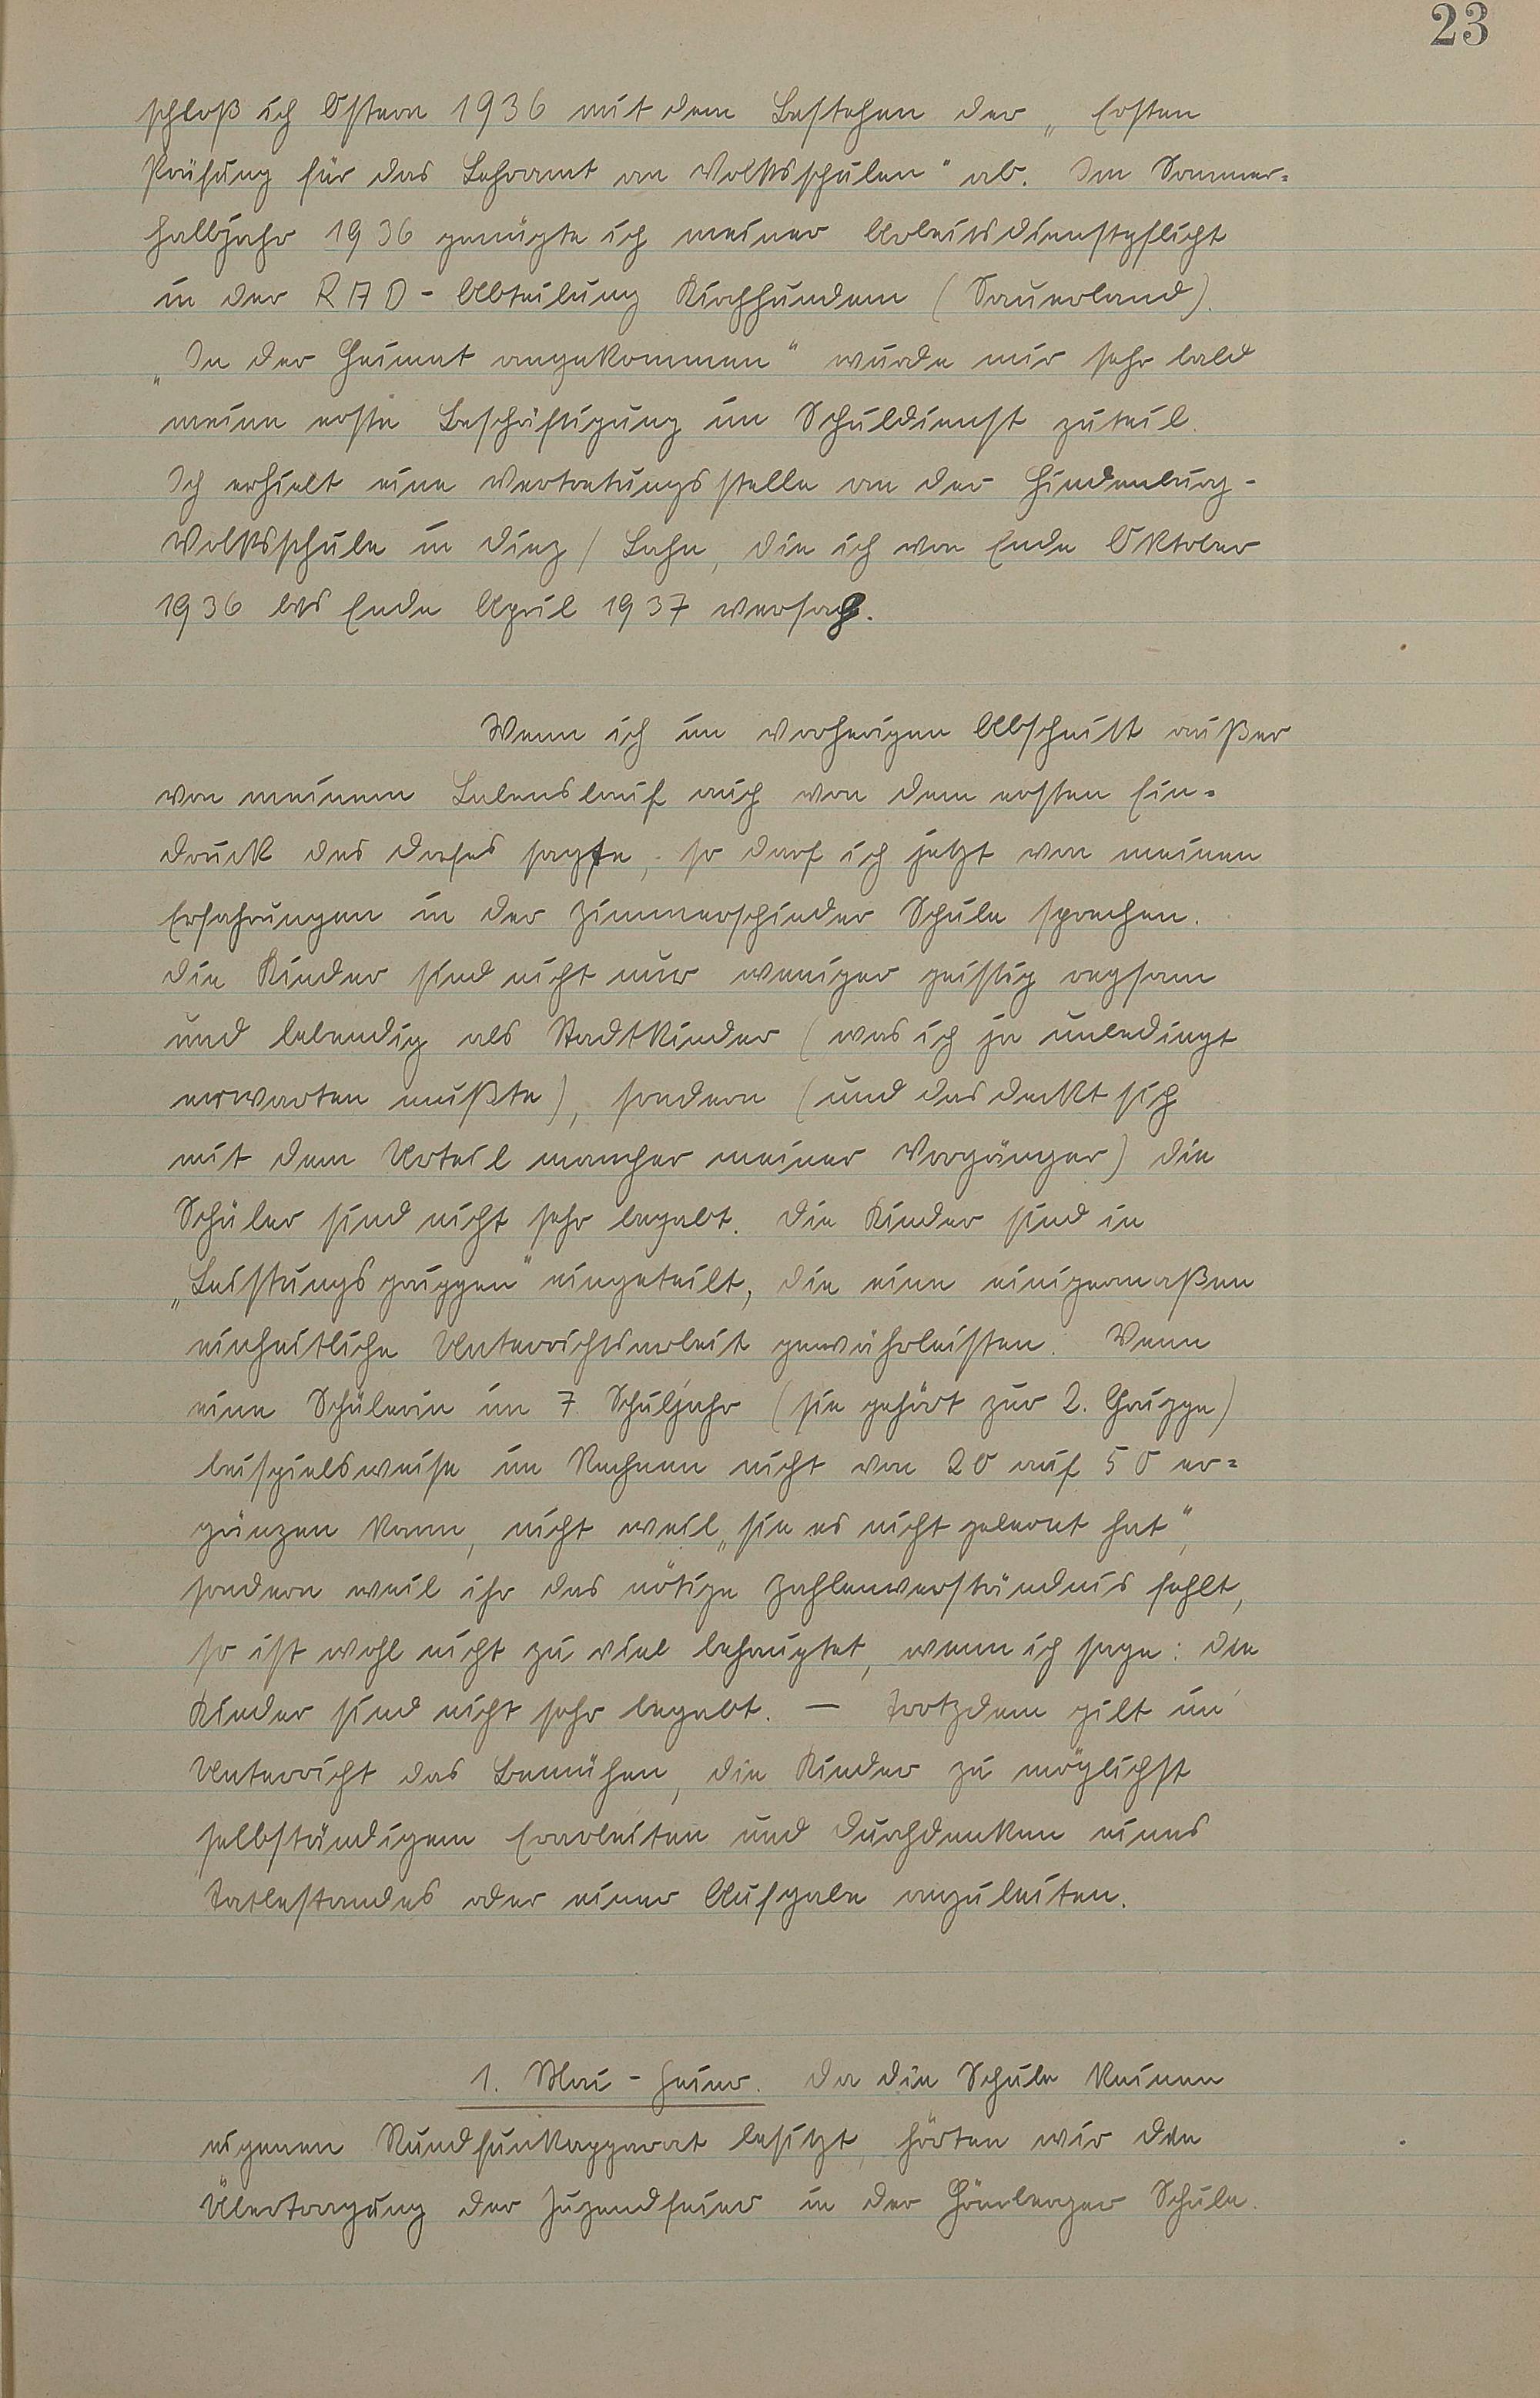 23
schloß ich Ostern 1936 mit dem Bestehen der „Ersten
Prüfung für das Lehramt an Volksschulen" ab. Im Sommer-
halbjahr 1936 genügte ich meiner Arbeitsdienstpflicht
in der RAD-Abteilung Kirchhundem (Sauerland).
„In der Heimat angekommen" wurde mir sehr bald
meine erste Beschäftigung im Schuldienst zuteil.
Ich erhielt eine Vertretungsstelle an der Hindenburg-
Volksschule in Diez / Lahn, die ich von Ende Oktober
1936 bis Ende April 1937 versah.
Wenn ich im vorherigen Abschnitt außer
von meinem Lebenslauf auch von dem ersten Ein-
druck des Dorfes sagte, so darf ich jetzt von meinen
Erfahrungen in der Zimmerschieder Schule sprechen.
Die Kinder sind nicht nur weniger geistig regsam
und lebendig als Stadtkinder (was ich ja unbedingt
erwarten mußte), sondern (und das deckt sich
mit dem Urteil mancher meiner Vorgänger) die
Schüler sind nicht sehr begabt. Die Kinder sind in
„Leistungsgruppen" eingeteilt, die eine einigermaßen
einheitliche Unterrichtsarbeit gewährleisten. Wenn
eine Schülerin im 7. Schuljahr (sie gehört zur 2. Gruppe)
beispielsweise im Rechnen nicht von 20 auf 50 er-
gänzen kann, nicht weil „sie es nicht gelernt hat",
sondern weil ihr das nötige Zahlenverständnis fehlt,
so ist wohl nicht zu viel behauptet, wenn ich sage: Die
Kinder sind nicht sehr begabt. — Trotzdem gilt im
Unterricht das Bemühen, die Kinder zu möglichst
selbständigem Erarbeiten und Durchdenken eines
Tatbestandes oder einer Aufgabe anzuleiten.
1. Mai-Feier. Da die Schule keinen
eigenen Rundfunkapparat besitzt, hörten wir die
Übertragung der Jugendfeier in der Hömberger Schule.